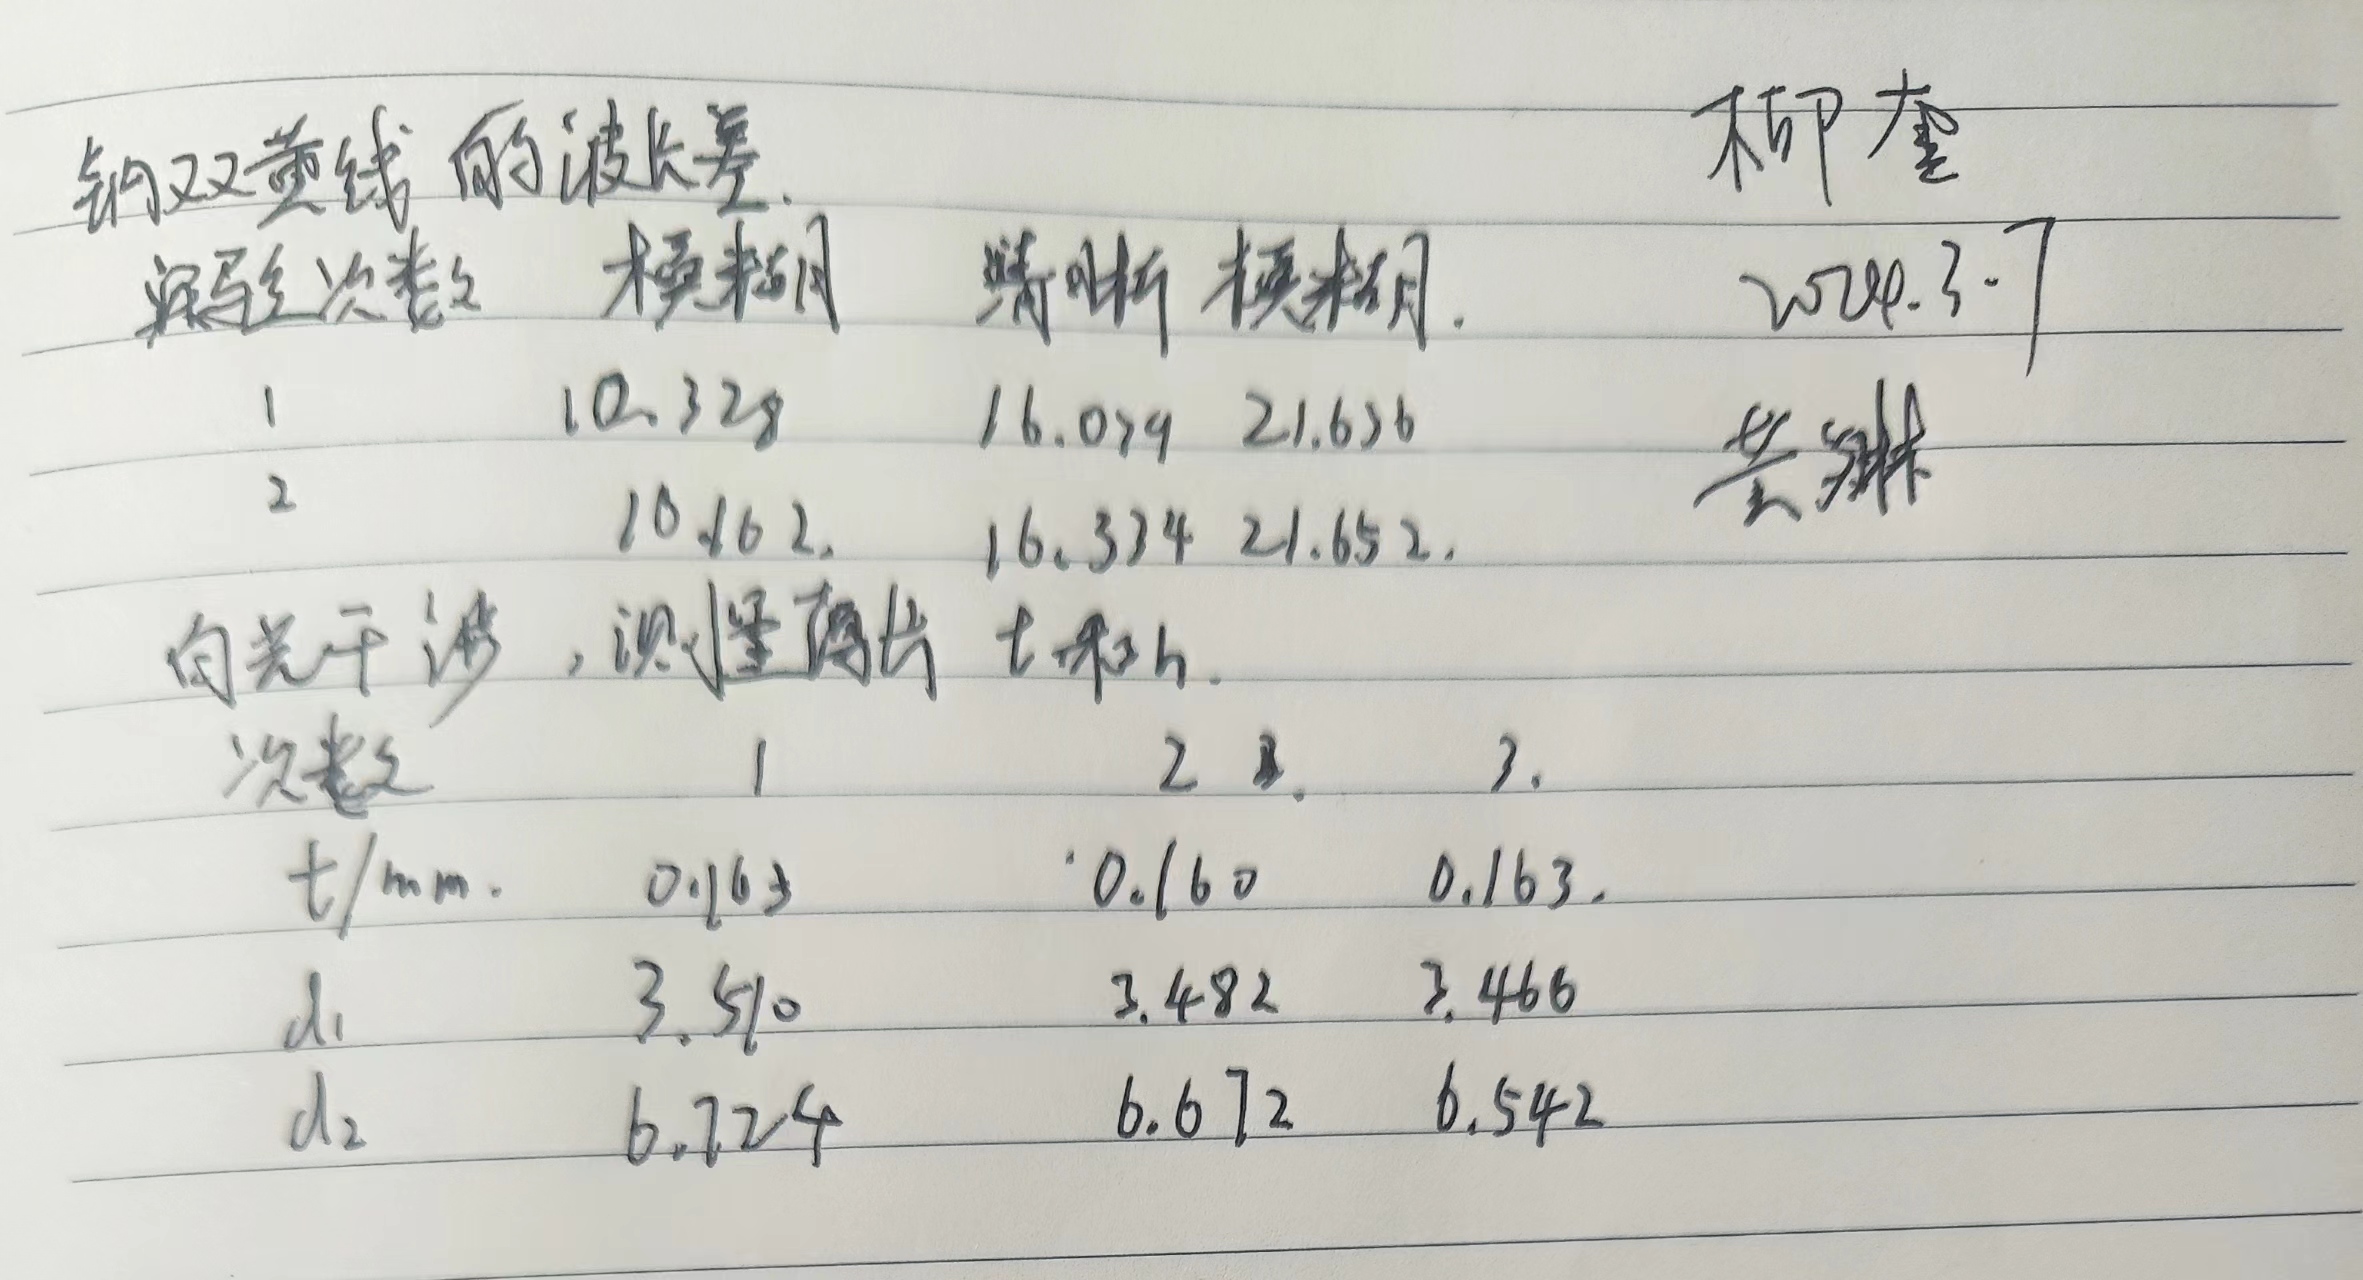 钠双黄线的波长差.
柳奎
实验次数 模糊 清晰 模糊.
2024.3.7
1 10.328 16.039 21.636
2 10.162. 16.334 21.652.
白光干涉,测量薄片 t和h.
次数 1 2 3.
t/mm. 0.163 0.160 0.163.
d1 3.510 3.482 3.466
d2 6.724 6.672 6.542